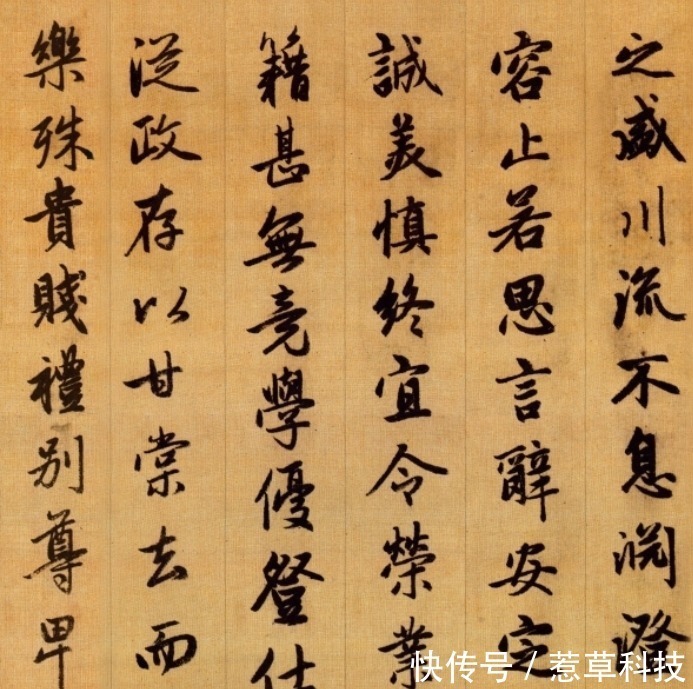 之盛川流不息淵澄
容止若思言辭安定
誠美慎終宜令榮業
籍甚無竟學優登仕
從政存以甘棠去而
樂殊貴賤禮別尊卑
快传号 / 惹草科技